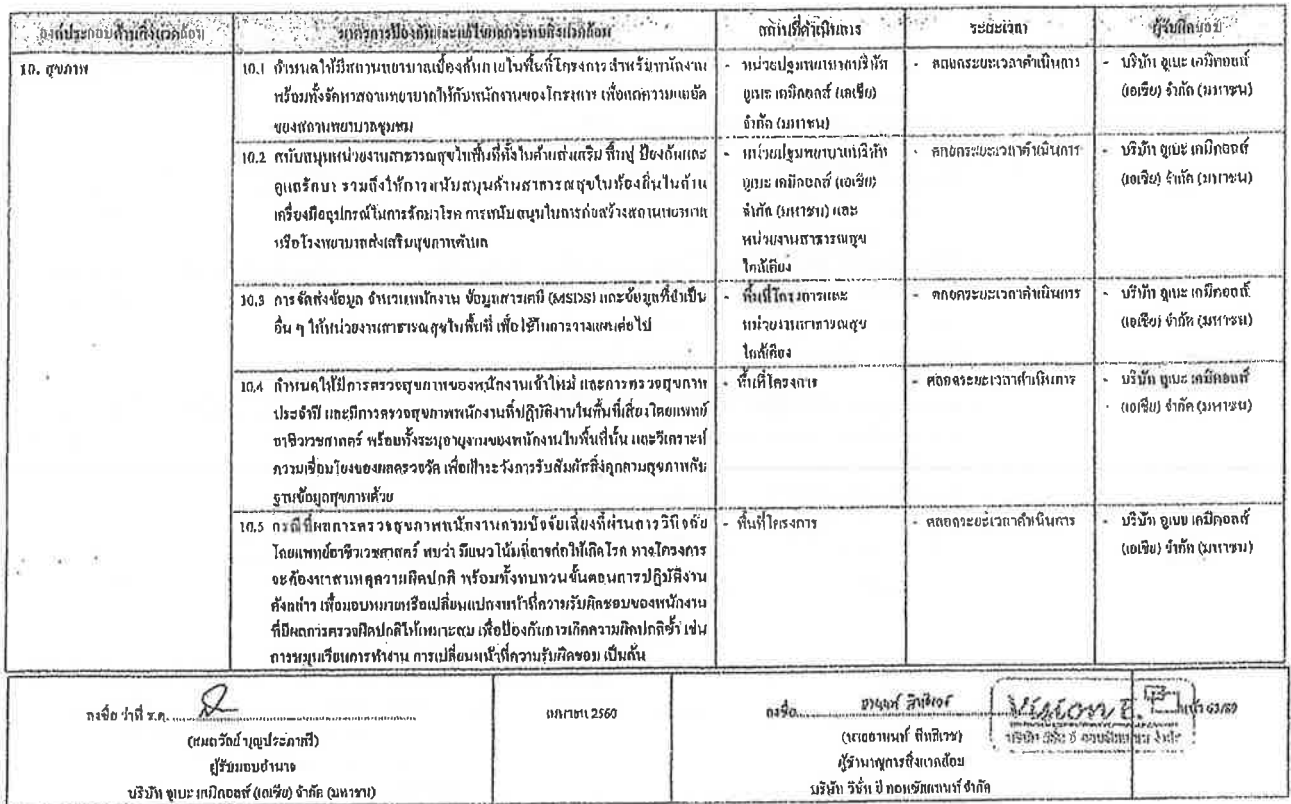 องค์ประกอบด้านสิ่งแวดล้อม
มาตรการป้องกันและแก้ไขผลกระทบสิ่งแวดล้อม
สถานที่ดำเนินการ
ระยะเวลา
ผู้รับผิดชอบ
10. สุขภาพ
10.1 กำหนดให้มีสถานพยาบาลเบื้องต้นภายในพื้นที่โครงการ สำหรับพนักงาน
พร้อมทั้งจัดหาสถานพยาบาลให้กับพนักงานของโครงการ เพื่อลดความแออัด
ของสถานพยาบาลชุมชน
- หน่วยปฐมพยาบาลบริษัท
อูเบะ เคมิคอลส์ (เอเชีย)
จำกัด (มหาชน)
- ตลอดระยะเวลาดำเนินการ
- บริษัท อูเบะ เคมิคอลส์
(เอเชีย) จำกัด (มหาชน)
10.2 สนับสนุนหน่วยงานสาธารณสุขในพื้นที่ทั้งในด้านส่งเสริม ฟื้นฟู ป้องกันและ
ดูแลรักษา รวมถึงให้การสนับสนุนด้านสาธารณสุขในท้องถิ่นในด้าน
เครื่องมืออุปกรณ์ในการรักษาโรค การสนับสนุนในการก่อสร้างสถานพยาบาล
หรือโรงพยาบาลส่งเสริมสุขภาพตำบล
- หน่วยปฐมพยาบาลบริษัท
อูเบะ เคมิคอลส์ (เอเชีย)
จำกัด (มหาชน) และ
หน่วยงานสาธารณสุข
ใกล้เคียง
- ตลอดระยะเวลาดำเนินการ
- บริษัท อูเบะ เคมิคอลส์
(เอเชีย) จำกัด (มหาชน)
10.3 การจัดส่งข้อมูล จำนวนพนักงาน ข้อมูลสารเคมี (MSDS) และข้อมูลที่จำเป็น
อื่น ๆ ให้หน่วยงานสาธารณสุขในพื้นที่ เพื่อใช้ในการวางแผนต่อไป
- พื้นที่โครงการและ
หน่วยงานสาธารณสุข
ใกล้เคียง
- ตลอดระยะเวลาดำเนินการ
- บริษัท อูเบะ เคมิคอลส์
(เอเชีย) จำกัด (มหาชน)
10.4 กำหนดให้มีการตรวจสุขภาพของพนักงานเข้าใหม่ และการตรวจสุขภาพ
ประจำปี และมีการตรวจสุขภาพพนักงานที่ปฏิบัติงานในพื้นที่เสี่ยงโดยแพทย์
อาชีวเวชศาสตร์ พร้อมทั้งระบุอายุงานของพนักงานในพื้นที่นั้น และวิเคราะห์
ความเชื่อมโยงของผลตรวจวัด เพื่อเฝ้าระวังการรับสัมผัสสิ่งคุกคามสุขภาพกับ
ฐานข้อมูลสุขภาพด้วย
- พื้นที่โครงการ
- ตลอดระยะเวลาดำเนินการ
- บริษัท อูเบะ เคมิคอลส์
(เอเชีย) จำกัด (มหาชน)
10.5 กรณีที่ผลการตรวจสุขภาพพนักงานตามปัจจัยเสี่ยงที่ผ่านการวินิจฉัย
โดยแพทย์อาชีวเวชศาสตร์ พบว่า มีแนวโน้มที่อาจก่อให้เกิดโรค ทางโครงการ
จะต้องหาสาเหตุความผิดปกติ พร้อมทั้งทบทวนขั้นตอนการปฏิบัติงาน
ดังกล่าว เพื่อมอบหมายหรือเปลี่ยนแปลงหน้าที่ความรับผิดชอบของพนักงาน
ที่มีผลการตรวจผิดปกติให้เหมาะสม เพื่อป้องกันการเกิดความผิดปกติซ้ำ เช่น
การหมุนเวียนการทำงาน การเปลี่ยนหน้าที่ความรับผิดชอบ เป็นต้น
- พื้นที่โครงการ
- ตลอดระยะเวลาดำเนินการ
- บริษัท อูเบะ เคมิคอลส์
(เอเชีย) จำกัด (มหาชน)
ลงชื่อ ว่าที่ ร.ต.
(สมดวัลย์ บุญประภาศรี)
ผู้รับมอบอำนาจ
บริษัท อูเบะ เคมิคอลส์ (เอเชีย) จำกัด (มหาชน)
เมษายน 2560
ลงชื่อ
(นายอานนท์ สิทธิเวช)
ผู้ชำนาญการสิ่งแวดล้อม
บริษัท วิชั่น อี คอนซัลแทนท์ จำกัด
Vision E.
หน้า 63/69